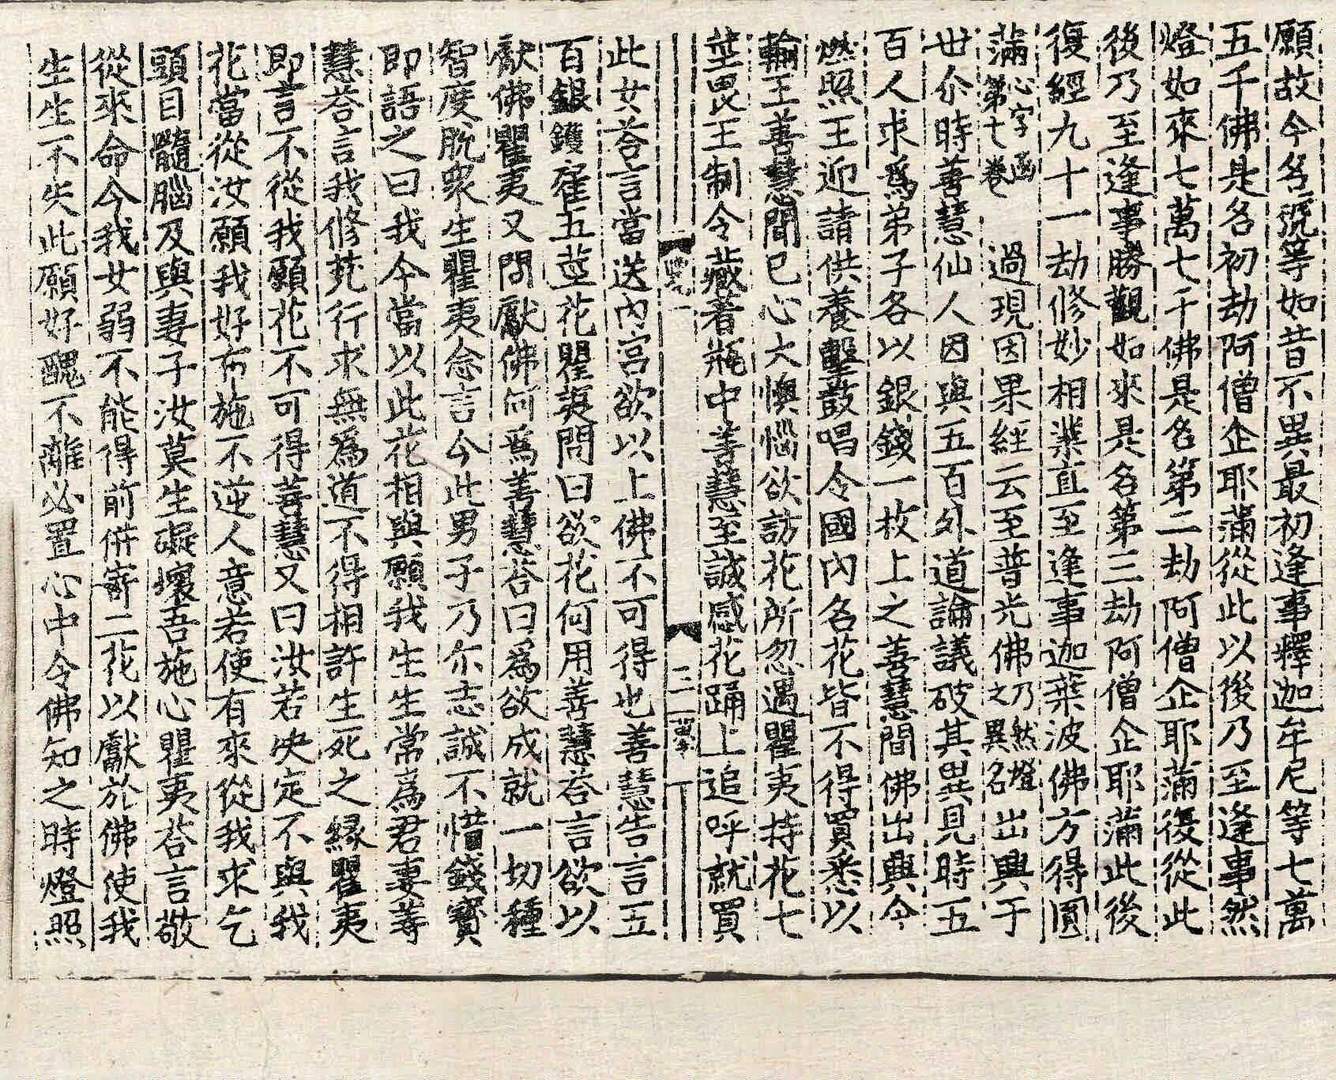 願故今名號等如昔不異最初逢事釋迦牟尼等七萬
五千佛是名初劫阿僧企耶滿從此以後乃至逢事然
燈如來七萬七千佛是名第二劫阿僧企耶滿復從此
後乃至逢事勝觀如來是名第三劫阿僧企耶滿此後
復經九十一劫修妙相業直至逢事迦葉波佛方得圓
滿心字函第七卷 過現因果經云至普光佛乃然燈之異名出興于
世尒時善慧仙人因與五百外道論議破其異見時五
百人求爲弟子各以銀錢一枚上之善慧聞佛出興今
燃照王迎請供養擊鼓唱令國內名花皆不得買悉以
輸王善慧聞已心大懊惱欲訪花所忽遇瞿夷持花七
莖畏王制令藏著瓶中善慧至誠感花踊上追呼就買
二
此女荅言當送內宮欲以上佛不可得也善慧告言五
百銀錢雇五莖花瞿夷問曰欲花何用善慧荅言欲以
獻佛瞿夷又問獻佛何爲善慧荅曰爲欲成就一切種
智度脫衆生瞿夷念言今此男子乃尒志誠不惜錢寶
即語之曰我今當以此花相與願我生生常爲君妻善
慧荅言我修梵行求無爲道不得相許生死之緣瞿夷
即言不從我願花不可得善慧又曰汝若決定不與我
花當從汝願我好布施不逆人意若使有來從我求乞
頭目髓腦及與妻子汝莫生礙壞吾施心瞿夷荅言敬
從來命今我女弱不能得前併寄二花以獻於佛使我
生生不失此願好醜不離必置心中令佛知之時燈照